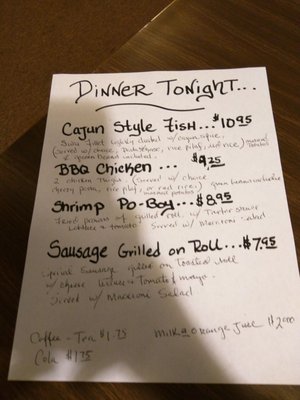 DINNER TONIGHT...
Cajun Style Fish...$10.95
Fillet lightly dusted w/ cajun spice
(Served w/ choice, rice pilaf, red rice) mashed potatoes
& green beans included
BBQ Chicken... $9.25
2 chicken thighs (Served w/ choice
cheesy pasta, rice pilaf, or red rice) green beans included
mashed potatoes
Shrimp Po-Boy...$8.95
Fried prawns grilled roll, w/ Tartar Sauce
Lettuce & tomato Served w/ Macaroni Salad
Sausage Grilled on Roll...$7.95
Special Sausage grilled on Toasted Roll
w/ cheese lettuce & Tomato & mayo
Served w/ Macaroni Salad
Coffee - Tea $1.75 Milk Orange Juice $2.00
Cola $1.75